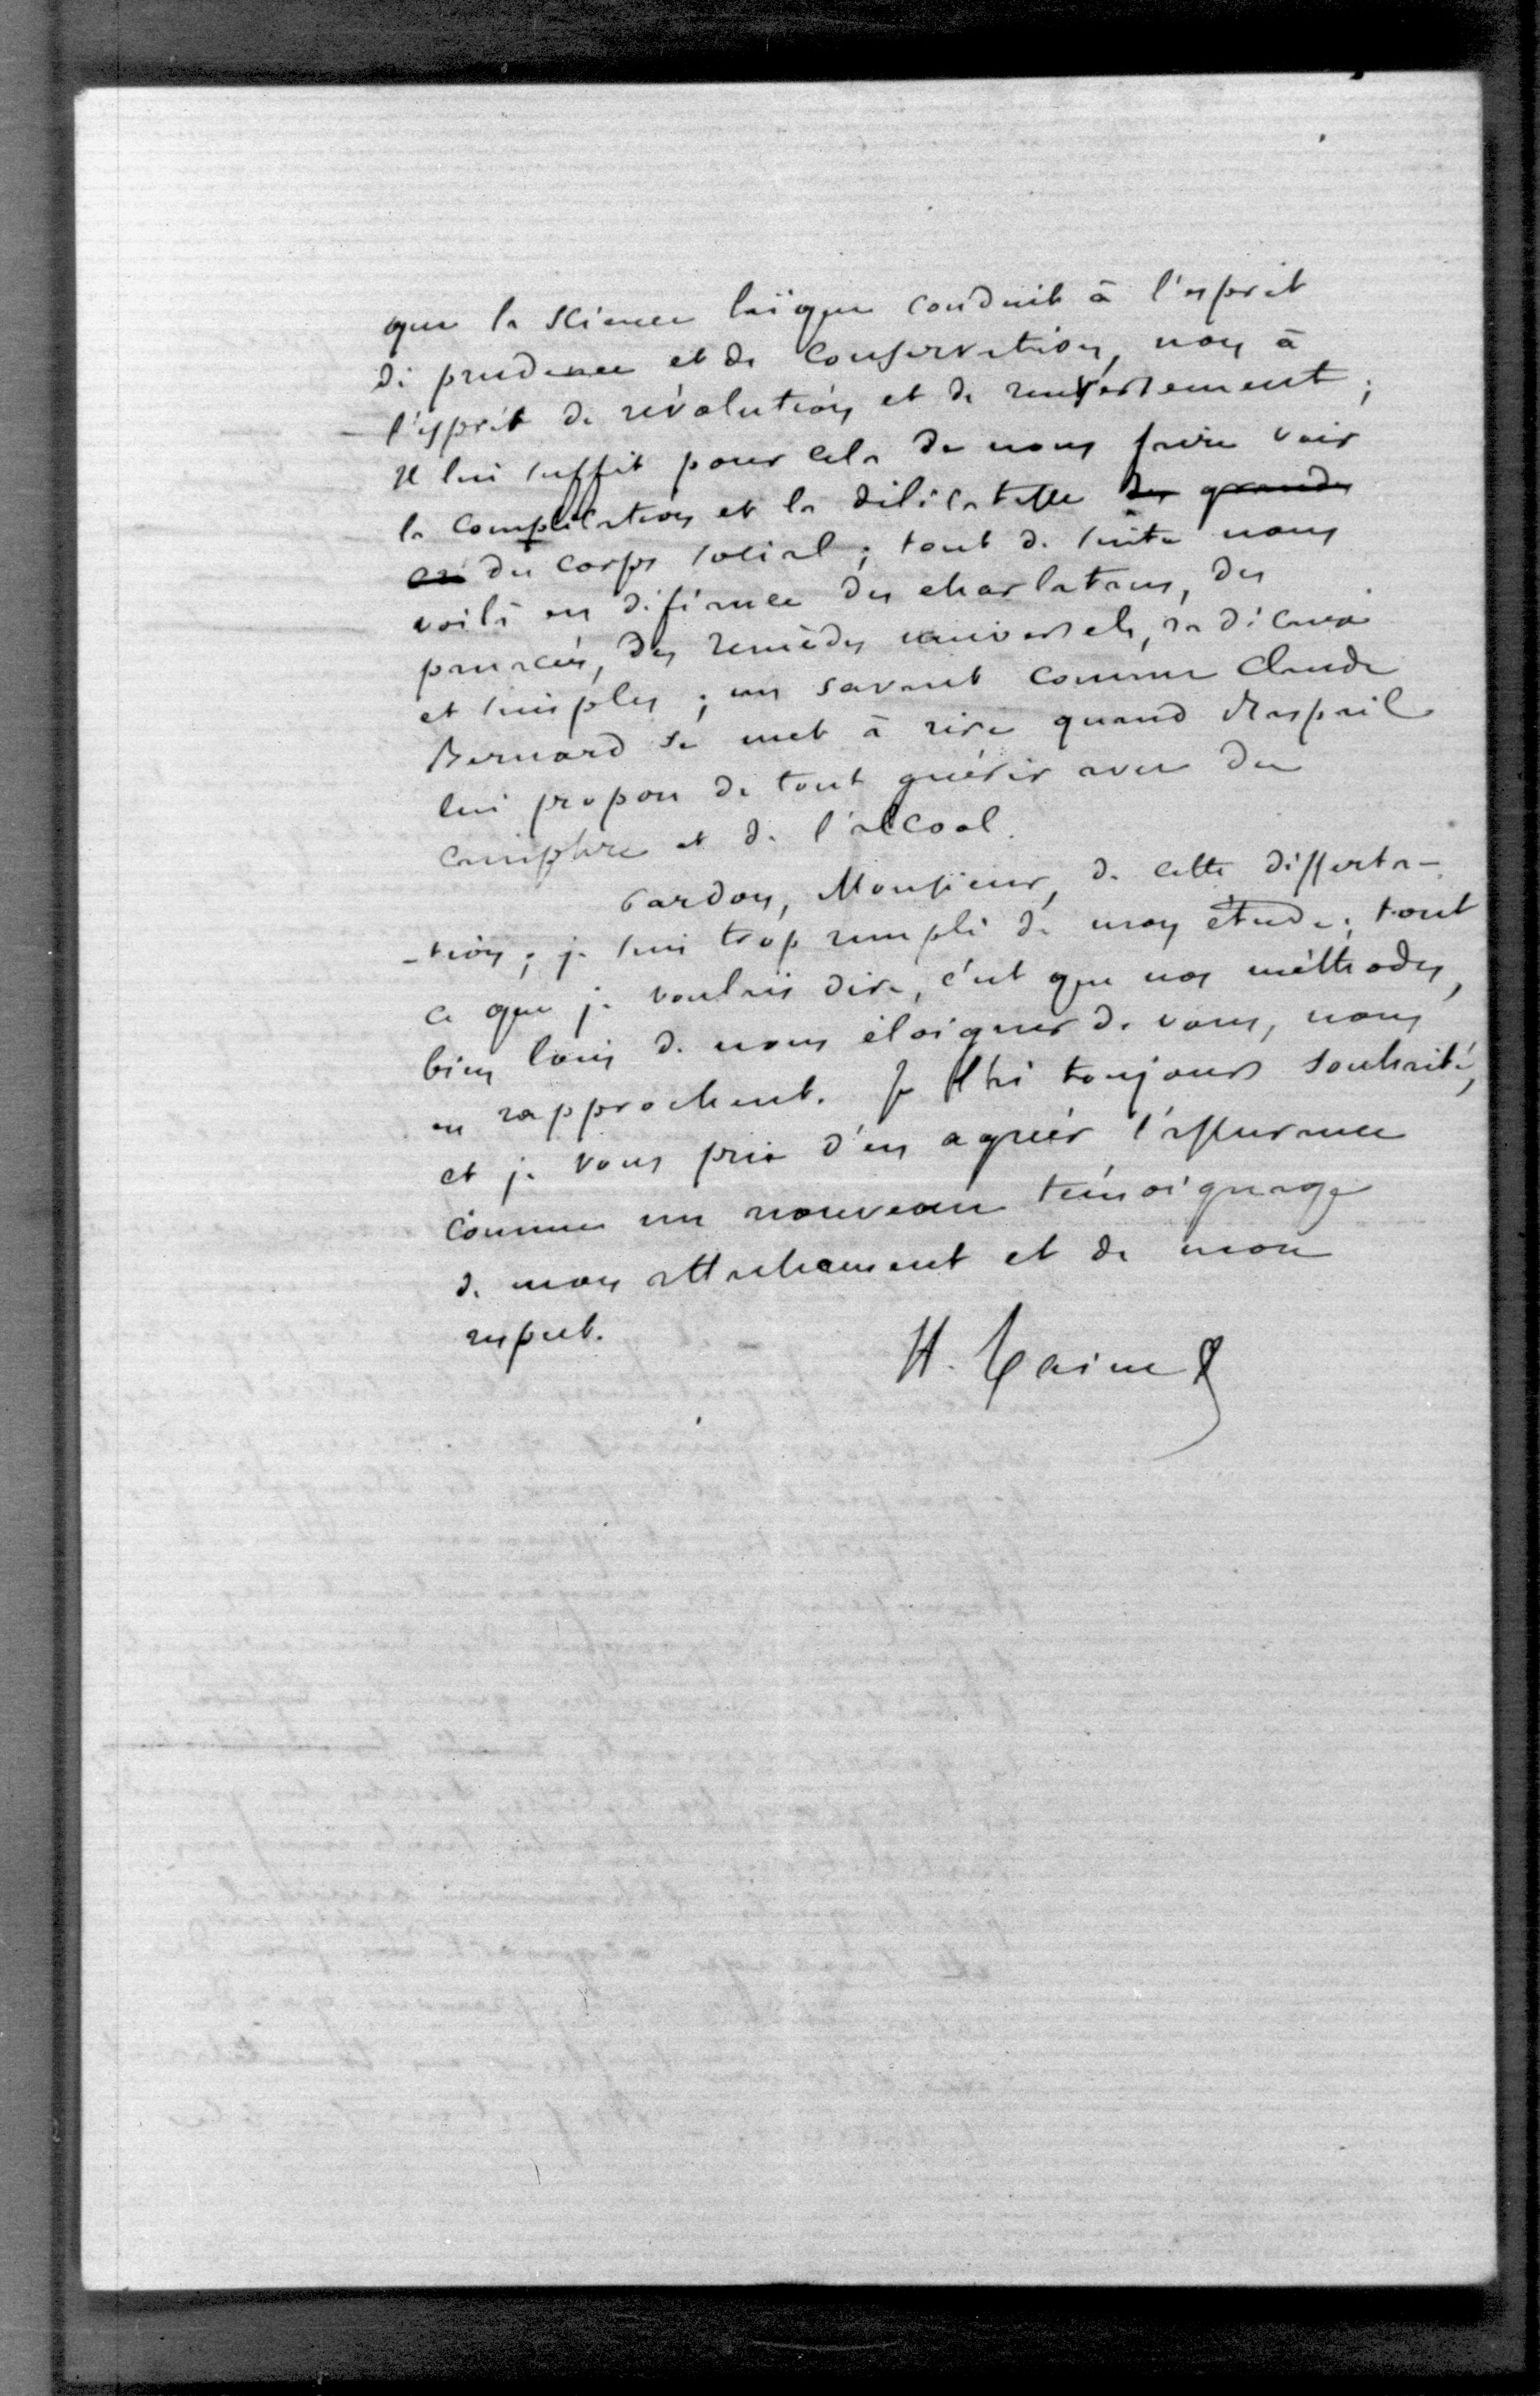 que la science laïque conduit à l'esprit
de prudence et de conservation, non à
l'esprit de révolution et de renversement ;
il lui suffit pour cela de nous faire voir
la complication et la délicatesse des grands
du corps social ; tout de suite nous
voilà en défiance des charlatans, des
panacées, des remèdes universels, radicaux
et simples ; un savant comme Claude
Bernard se met à rire quand Raspail
lui propose de tout guérir avec du
camphre et de l'alcool.
Pardon, Monsieur, de cette disserta-
-tion ; je suis trop rempli de mon étude ; tout
ce que je voulais dire, c'est que nos méthodes,
bien loin de nous éloigner de vous, nous
en rapprochent. Je l'ai toujours souhaité,
et je vous prie d'en agréer l'assurance
comme un nouveau témoignage
de mon attachement et de mon
respect.
H. Taine